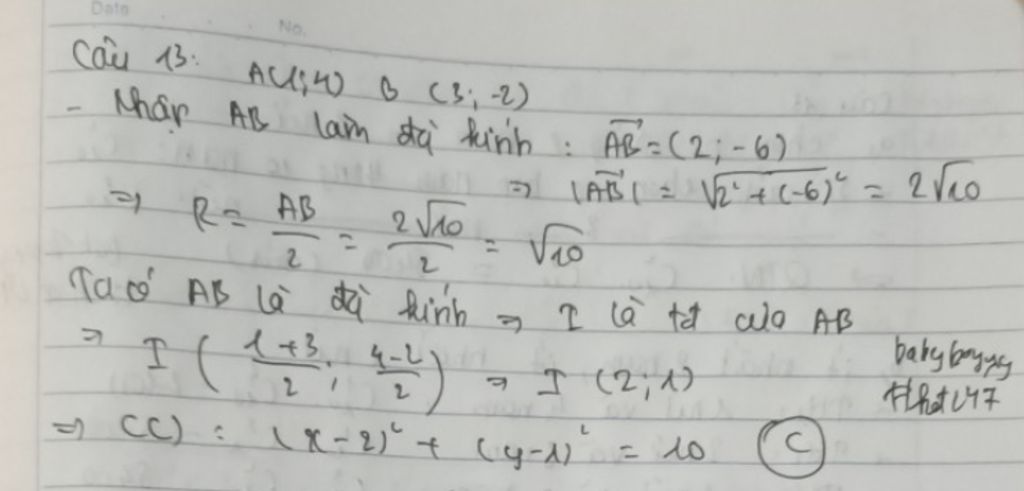 Date
No.
Câu 13: A(1;4) B (3;-2)
- Nhận AB làm đg kính : AB = (2;-6)
=> |AB| = √2² + (-6)² = 2√10
=> R = AB/2 = 2√10/2 = √10
Ta có AB là đg kính => I là tđ của AB
=> I (1+3/2; 4-2/2) => I (2;1)
=> (C) : (x-2)² + (y-1)² = 10 C